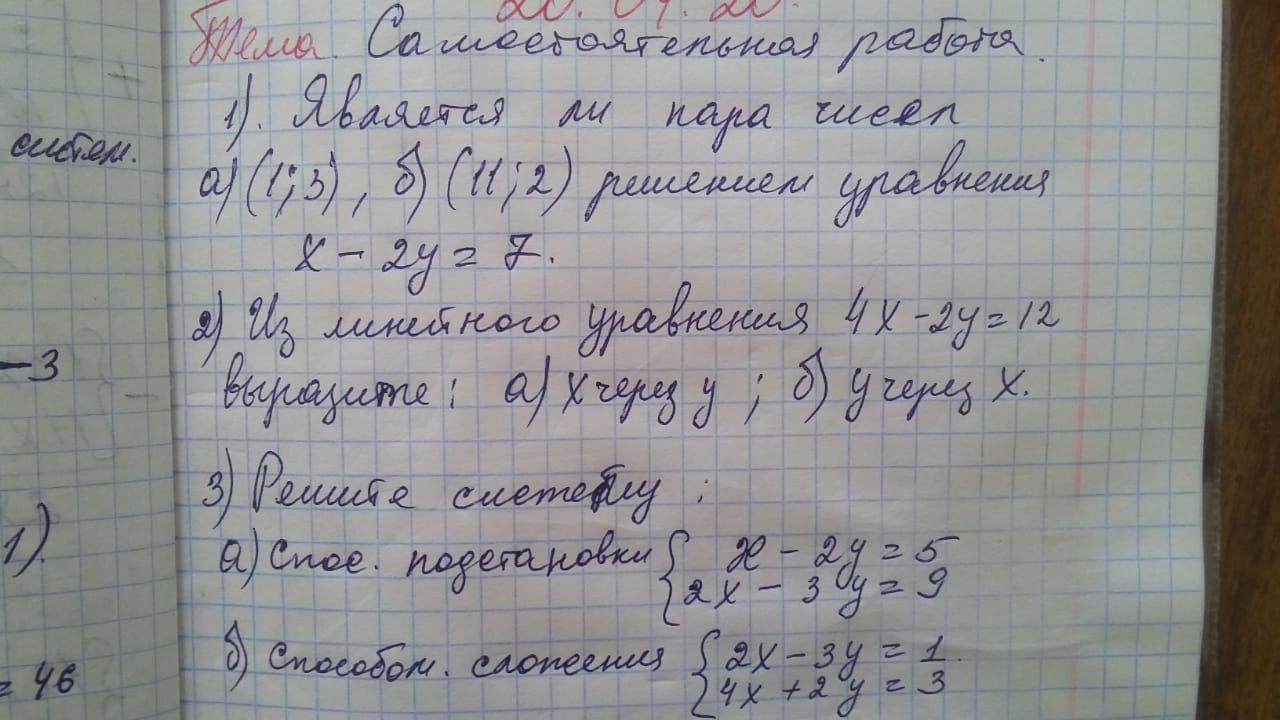 20. 04. 20.
Тема. Самостоятельная работа.
1). Является ли пара чисел
а) (1; 3), б) (11; 2) решением уравнения
x - 2y = 7.
2) Из линейного уравнения 4x - 2y = 12
выразите: а) x через y ; б) y через x.
3) Решите систему :
а) Спос. подстановки { x - 2y = 5
2x - 3y = 9
б) Способом. сложения { 2x - 3y = 1.
4x + 2y = 3
систем.
-3
1).
= 46